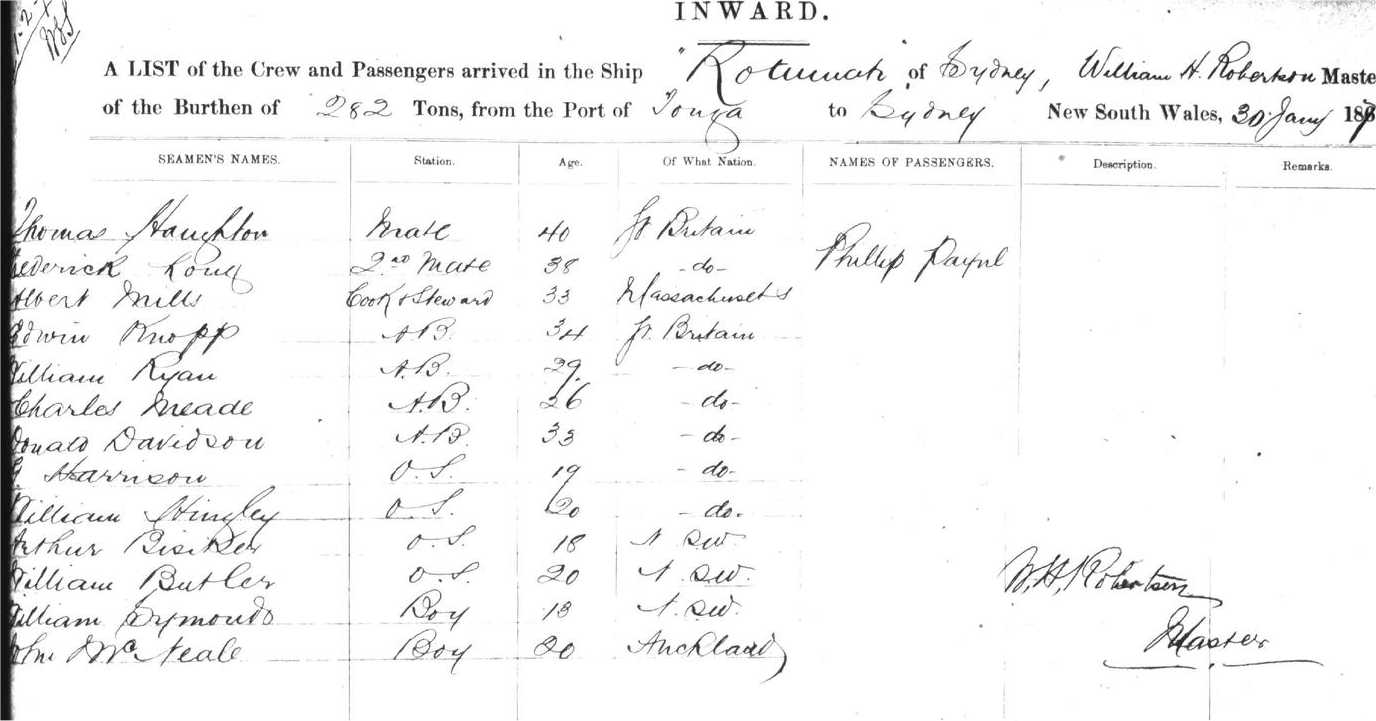 INWARD.
A LIST of the Crew and Passengers arrived in the Ship "Rotumah" of Sydney, William H. Robertson Maste
of the Burthen of 282 Tons, from the Port of Tonga to Sydney New South Wales, 30 Jany 187
SEAMEN'S NAMES. Station. Age. Of What Nation. NAMES OF PASSENGERS. Description. Remarks.
Thomas Haughton Mate 40 Gt Britain
Phillip Payne
ederick Long 2nd Mate 38 - do -
Albert Mills Cook & Steward 33 Massachusets
Edwin Knopp A.B. 34 Gt. Britain
William Ryan A.B. 29 - do -
Charles Meade A.B. 26 - do -
Donald Davidson A.B. 33 - do -
Harrison O.S. 19 - do -
William Hingley O.S. 20 - do -
Arthur O.S. 18 N.S.W.
William Butler O.S. 20 N.S.W.
William Symonds Boy 18 N.S.W.
John McNeale Boy 20 Auckland
W. H. Robertson
Master